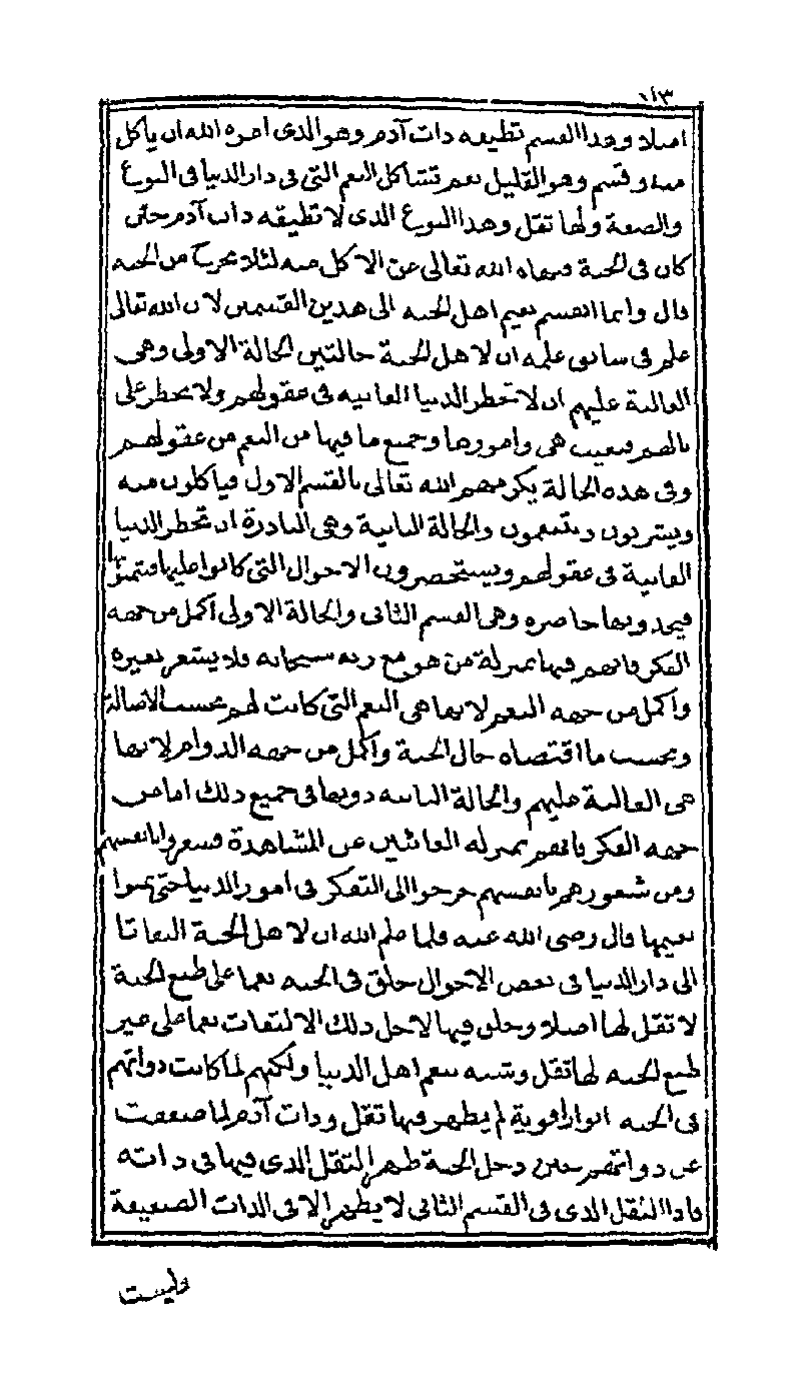 اصلا وهذا القسم تطيقه ذات آدم وهو الذى امره الله ان ياكل
منه وقسم وهو القليل نعم تشاكل النعم التى فى دار الدنيا فى النوع
والصفة ولها ثقل وهذا النوع الذى لا تطيقه ذات آدم حتى
كان فى الجنة فنهاه الله تعالى عن الاكل منه لئلا يخرج من الجنه
قال وانما انقسم نعيم اهل الجنه الى هذين القسمين لان الله تعالى
علم فى سابق علمه ان لاهل الجنة حالتين الحالة الاولى وهى
الغالبة عليهم ان لا تخطر الدنيا الفانيه فى عقولهم ولا تخطر على
بالهم فتغيب هى وامورها وجميع ما فيها من النعم من عقولهم
وفى هذه الحالة يكرمهم الله تعالى بالقسم الاول فياكلون منه
ويشربون ويتنعمون والحالة الثانية وهى النادرة ان تخطر الدنيا
الفانية فى عقولهم ويستحضرون الاحوال التى كانوا عليها فيتمنونها
فيجدونها حاضره وهى القسم الثانى والحالة الاولى اكمل من جهه
الفكر فانهم فيها بمنزلة من هو مع ربه سبحانه فلا يشعر بغيره
واكمل من جهه النعم لانها هى النعم التى كانت لهم بحسب الاصالة
وبحسب ما اقتضاه حال الجنة واكمل من جهه الدوام لانها
هى الغالبة عليهم والحالة الثانيه دونها فى جميع ذلك اما من
جهه الفكر فانهم بمنزله الغائبين عن المشاهدة فشعروا بانفسهم
ومن شعورهم بانفسهم خرجوا الى التفكر فى امور الدنيا حتى تمنوا
نعيمها قال رضى الله عنه فلما علم الله ان لاهل الجنة التفاتا
الى دار الدنيا فى بعض الاحوال خلق فى الجنه نعما على طبع الجنة
لا ثقل لها اصلا وخلق فيها لاجل ذلك الالتفات نعما على غير
طبع الجنه لها ثقل وتشبه نعم اهل الدنيا ولكنهم لما كانت ذواتهم
فى الجنه انوارا قوية لم يظهر فيها ثقل وذات آدم لما ضعفت
عن ذواتهم حين دخل الجنة ظهر الثقل الذى فيها فى ذاته
فاذا الثقل الذى فى القسم الثانى لا يظهر الا فى الذات الضعيفة
وليست